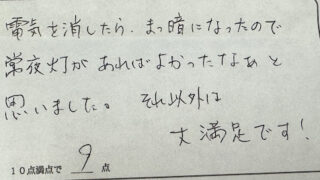 電気を消したら、まっ暗になったので
常夜灯が あればよかったなぁ と
思いました。 それ以外は
大満足です!
10点満点で 9 点